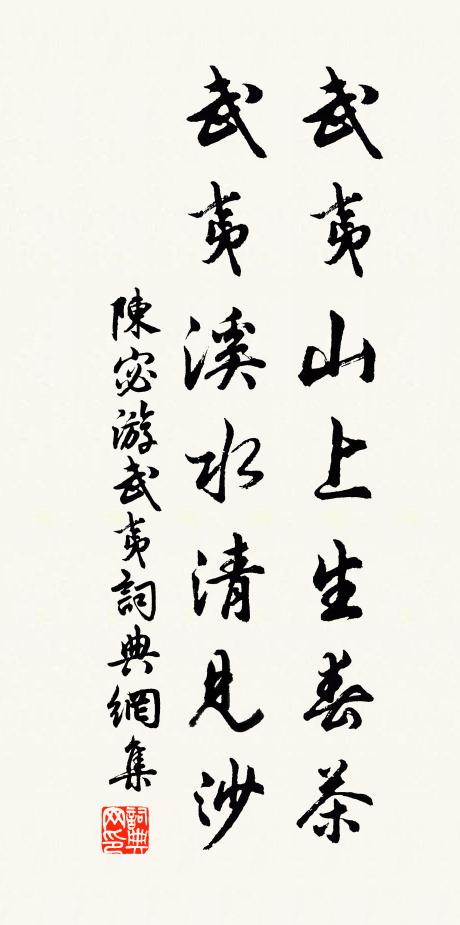 武夷山上生春茶
武夷溪水清見沙
陳宓游武夷詞典網集
詞典網印